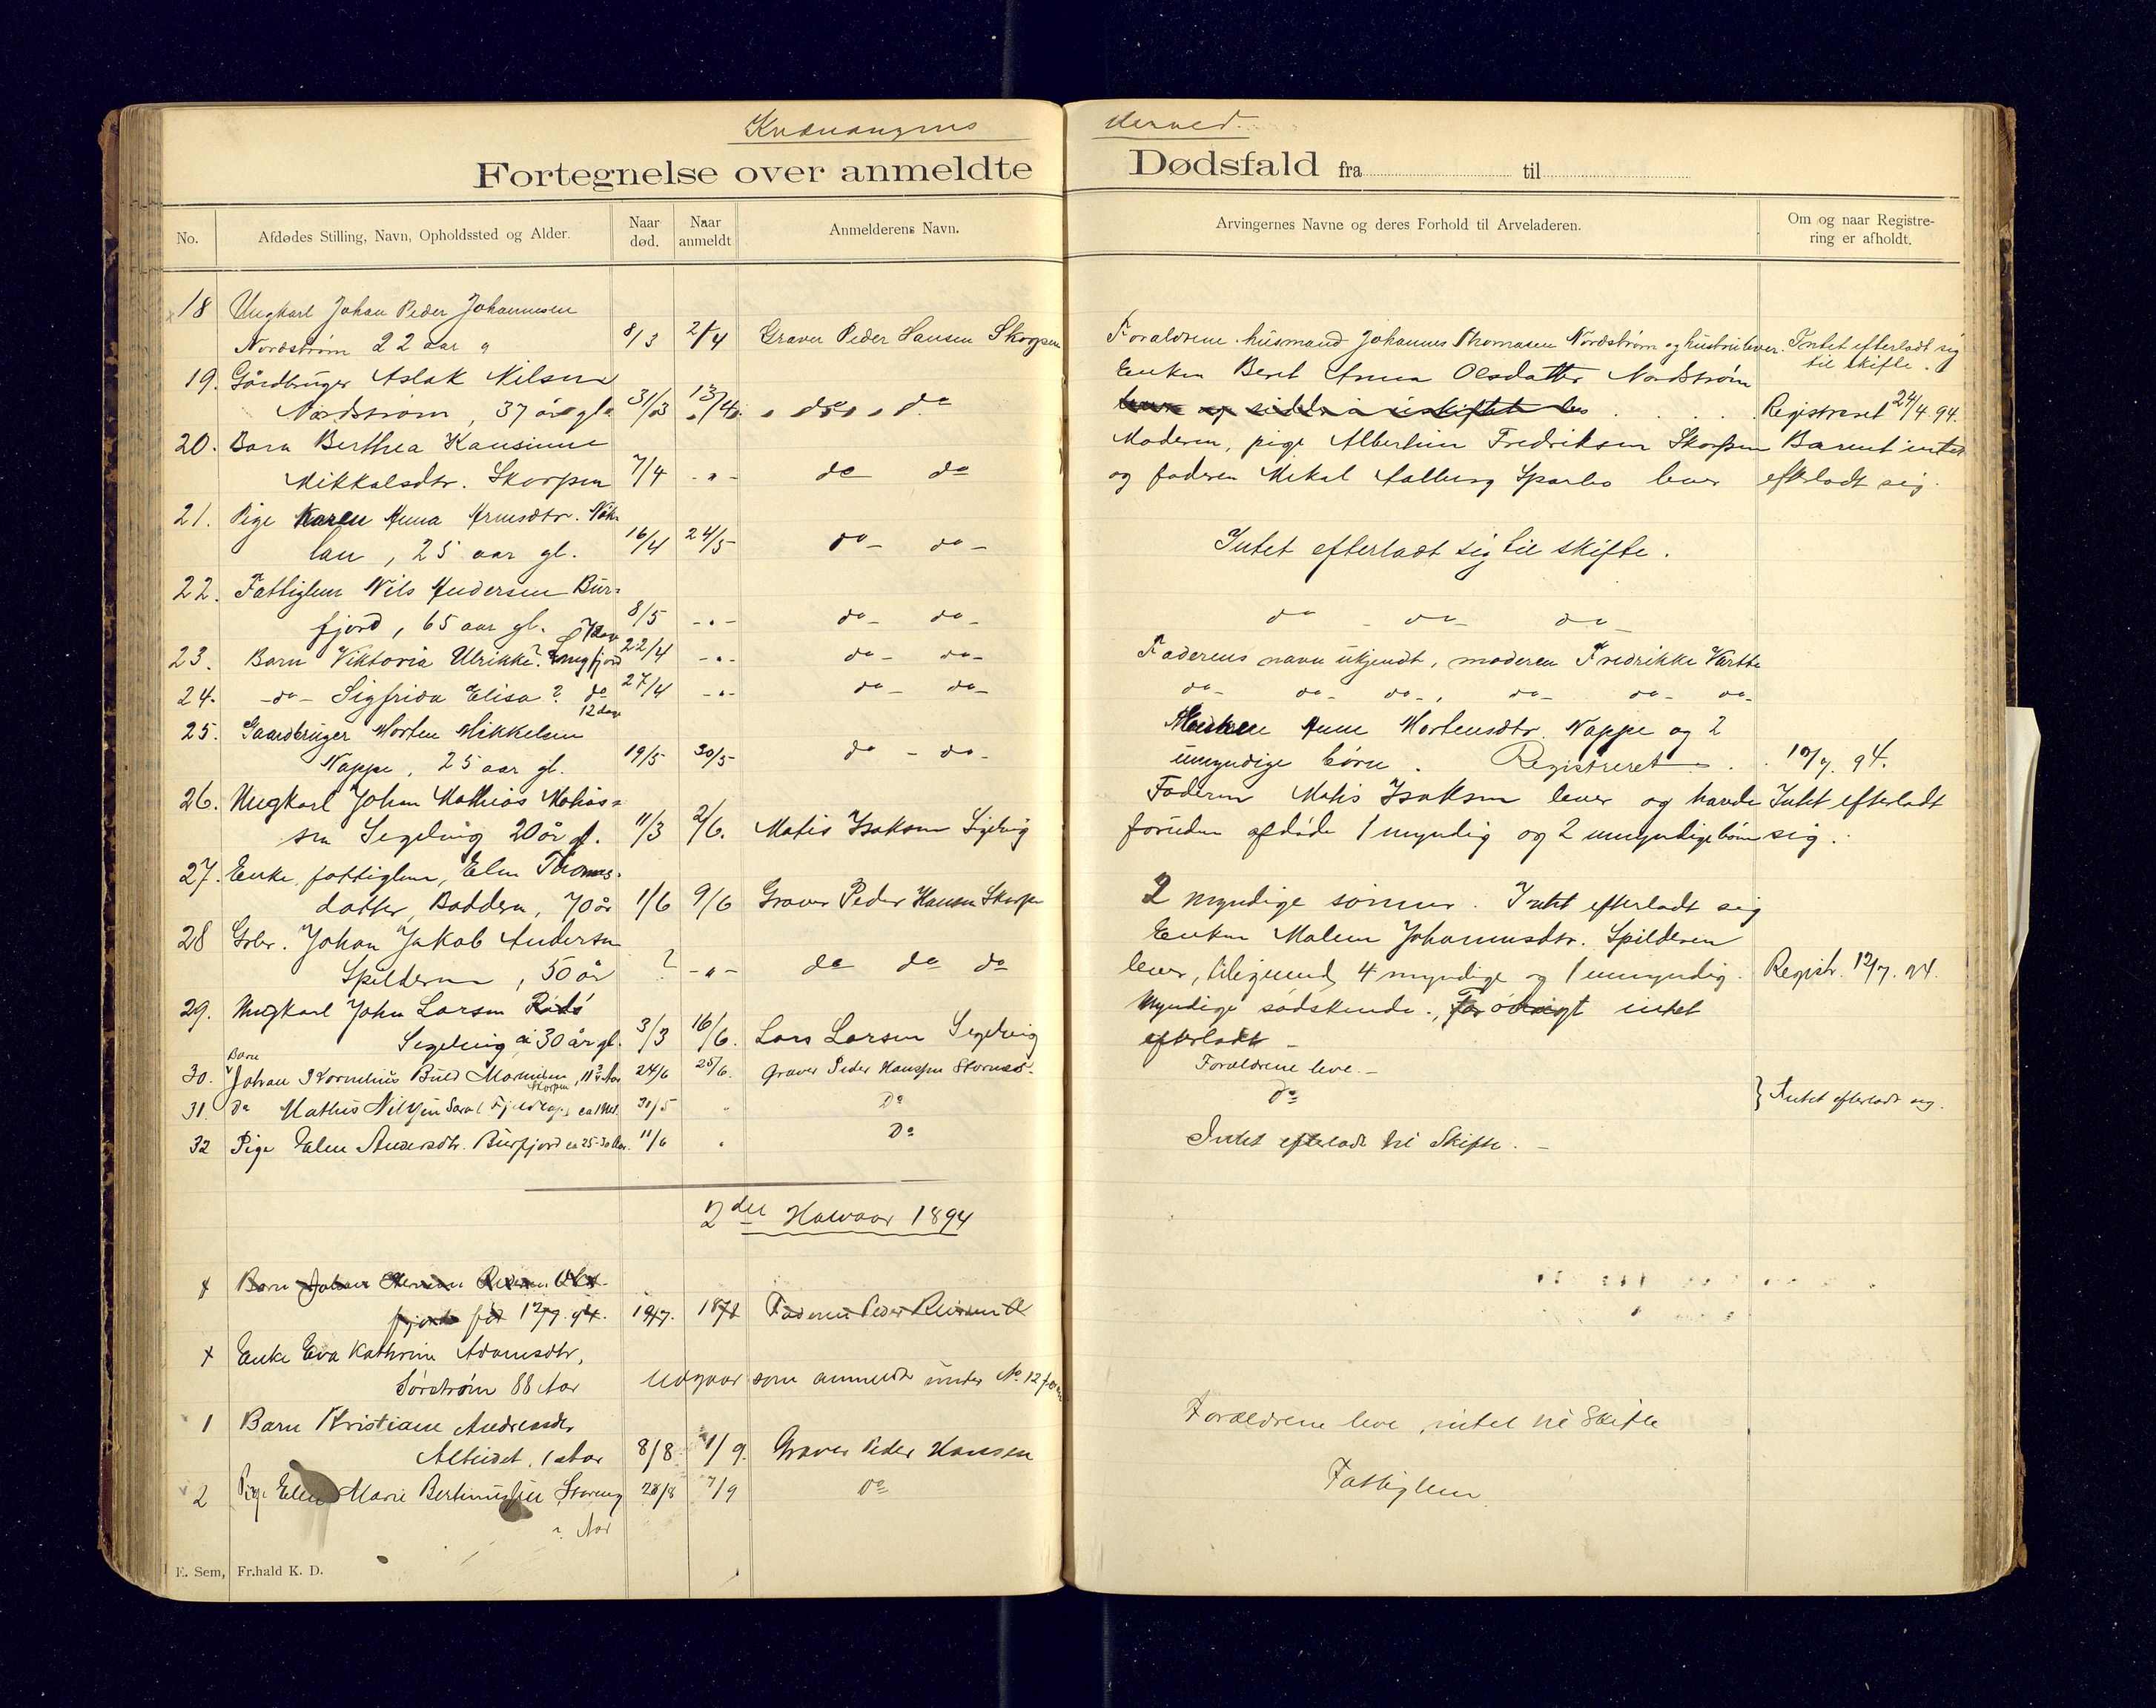 Kvænangens Herred.
Fortegnelse over anmeldte Dødsfald fra til
No.
Afdødes Stilling, Navn, Opholdssted og Alder.
Naar død.
Naar anmeldt
Anmelderens Navn.
Arvingernes Navne og deres Forhold til Arveladeren.
Om og naar Registrering er afholdt.
18 Ungkarl Johan Peder Johannesen
Nordstrøm 22 aar 8/3 2/4 Graver Peder Hansen Skorpen Forældrene husmand Johannes Thomasen Nordstrøm og hustru lever. Intet efterladt sig
til skifte.
19. Gårdbruger Aslak Nilsen Enken Beret Anna Olsdatter Nordstrøm
Nordstrøm, 37 år gl. 31/3 13/4 do do Registreret 24/4 94.
20. Barn Berthea Hansinne Moderen, pige Albertine Fredriksen Skorpen Barnet intet
Mikkalsdtr. Skorpen 7/4 - " - do do og faderen Mikal Aalberg Sparbo lever efterladt sig.
21. Pige Karen Anna Arnesdtr. Nök-
lan, 25 aar gl. 16/4 24/5 do- do- Intet efterladt sig til skifte.
22. Fattiglem Nils Andersen Bur-
fjord, 65 aar gl. 8/5 - " - do- do- do - do - do -
23. Barn Viktoria Ulrikke? 22/4 - " - do- do- Faderens navn ukjendt, moderen Fredrikke
24. -do- Sigfrida Elisa? do 27/4 - " - do- do- do- do- do-, do- do- do-
12 dage
25. Gaardbruger Morten Mikkelsen Enken Anne Mortensdtr. Nappe og 2
Nappe, 25 aar gl. 19/5 30/5 do - do- umyndige børn. Registreret 94.
26. Ungkarl Johan Mathias Matias- Faderen Matis Isaksen lever og havde Intet efterladt
sen Segelvig 20 år gl. 11/3 2/6. Matis Isaksen Segelvig foruden afdøde 1 myndig og 2 umyndige børn sig.
27. Enke, fattiglem, Elen Thomas-
datter, Baddern, 70 år 1/6 9/6 Graver Peder Hansen Skorpen 2 myndige sønner. Intet efterladt sig
28 Gbr. Johan Jakob Andersen Enken Malene Johannesdtr. Spilderen
Spilderen, 50 år ? - " - do do do lever, 4 myndige og 1 umyndig. Registr. 12/7. 94.
29. Ungkarl John Larsen Myndige sødskende. For øvrigt intet
Segelvig, 30 år gl. 3/3 16/6. Lars Larsen Segelvig efterladt -
30. Barn Johan Kornelius 24/6 25/6. Graver Peder Hansen Forældrene leve. -
Skorpen
31. do Mathis Nilsen 30/5 " Do do } Intet efterladt sig.
32 Pige Elen Andersdtr. Burfjord ca 25-30 Aar. 11/6 " Do Intet efterladt til Skifte. -
2den Halvaar 1894
x Barn Johan
fød 12/7. 94. Faderen Peder
x Enke Eva Kathrine Adamsdtr,
Sørstrøm 88 Aar Udgaar som anmeldt under No. 12
1 Barn Kristiane Andreasdtr
Alteidet, 1 Aar 8/8 1/9. Graver Peder Hansen Forældrene leve, intet til Skifte
2 Pige Elen Marie Storeng 28/8 7/9 Do Fattiglem
? Aar
E. Sem, Fr.hald K. D.